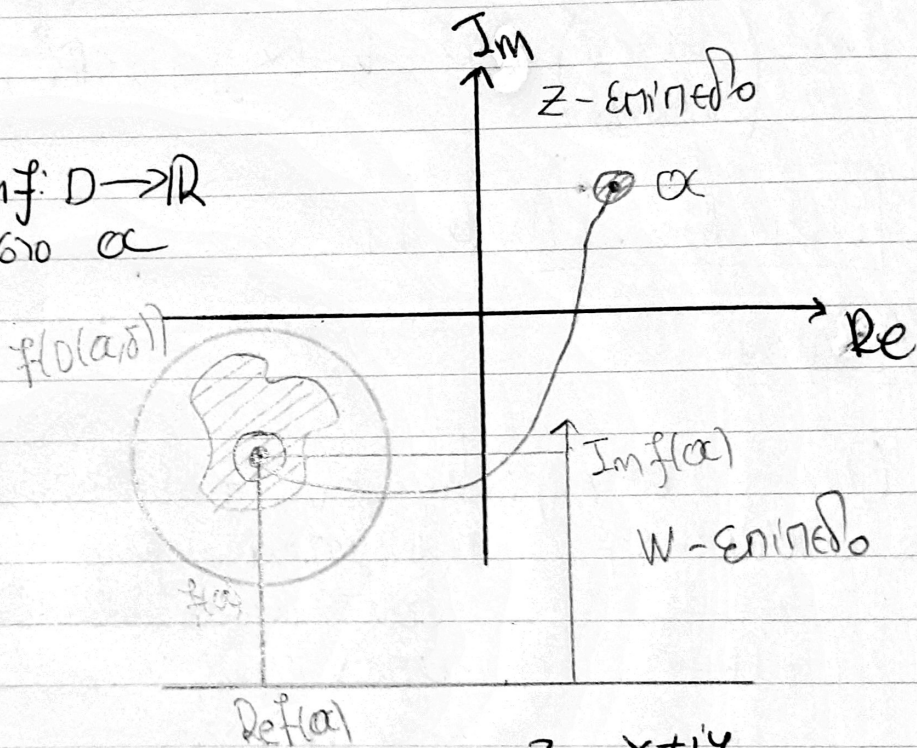 Im
z-επίπεδο
f: D→ℝ
στο α
α
f(D(α,δ))
Re
Im f(α)
W-επίπεδο
f(α)
Re f(α)